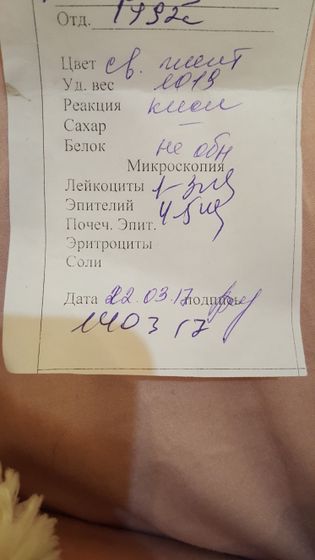 Отд. 1992г
Цвет св. желт
Уд. вес 1019
Реакция кисл
Сахар —
Белок не обн
Микроскопия
Лейкоциты 1-3
Эпителий 4-5
Почеч. Эпит.
Эритроциты
Соли
Дата 22.03.17 подпись
14 03 17